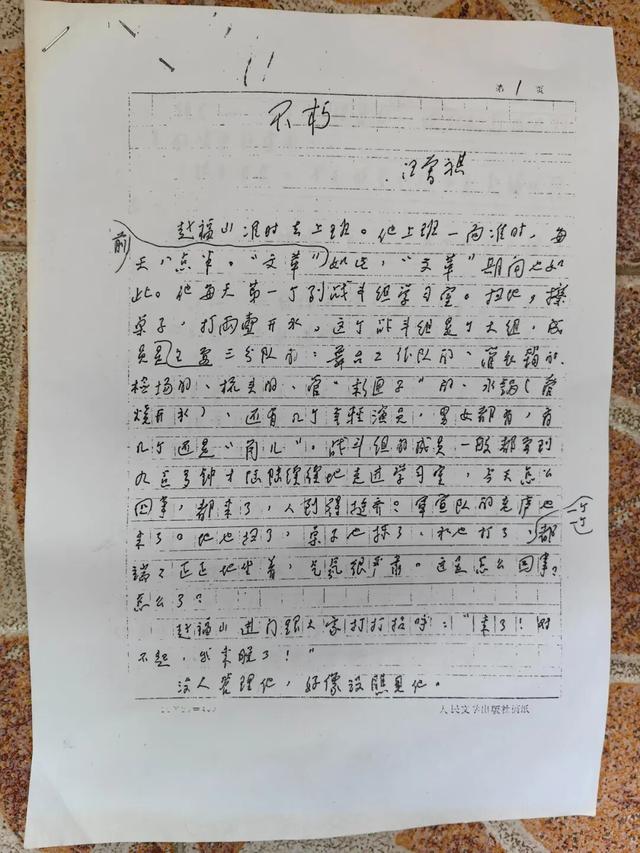 第1页
不朽
汪曾祺
赵福山准时去上班。他上班一向准时,每
前
天八点半。“文革”如此,“文革”期间也如
此。他每天第一个到战斗组学习室。扫地,擦
桌子,打两壶开水。这个战斗组是个大组,成
员有三分队的:舞台工作队的、管衣箱的、
检场的、梳头的、管“彩匣子”的、水锅(管
烧开水),还有几个年轻演员,男女都有,有
几个还是“角儿”。战斗组的成员一般都拿到
九点多钟才陆陆续续地走进学习室,今天怎么
回事,都来了,人到得挺齐?军宣队的老卢也
一个个
来了。地也扫了,桌子也擦了,水也打了,都
端端正正地坐着,空气很严肃。这是怎么回事?
怎么了?
赵福山进门跟大家打打招呼:“来了!对
不起,我来晚了!”
没人答理他,好像没瞧见他。
人民文学出版社稿纸